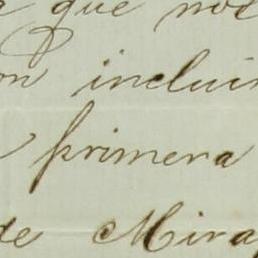 que nos
incluir
primera
de Mira